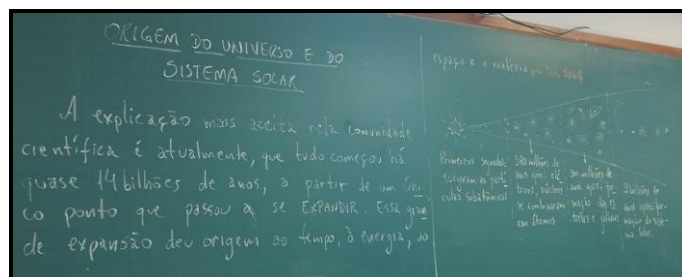 ORIGEM DO UNIVERSO E DO
SISTEMA SOLAR
A explicação mais aceita pela comunidade
científica é atualmente, que tudo começou há
quase 14 bilhões de anos, a partir de um úni
co ponto que passou a se EXPANDIR. Essa gran
de expansão deu origem ao tempo, à energia, ao
espaço e a matéria
Primeiros segundos:
surgiram as partí
culas subatômicas
380 milhões de
anos após: elé
trons, núcleos
se combinaram
em átomos
300 milhões de
anos após: for
mação das es
trelas e galáxias
9 bilhões de
anos após: for
mação do siste
ma Solar.